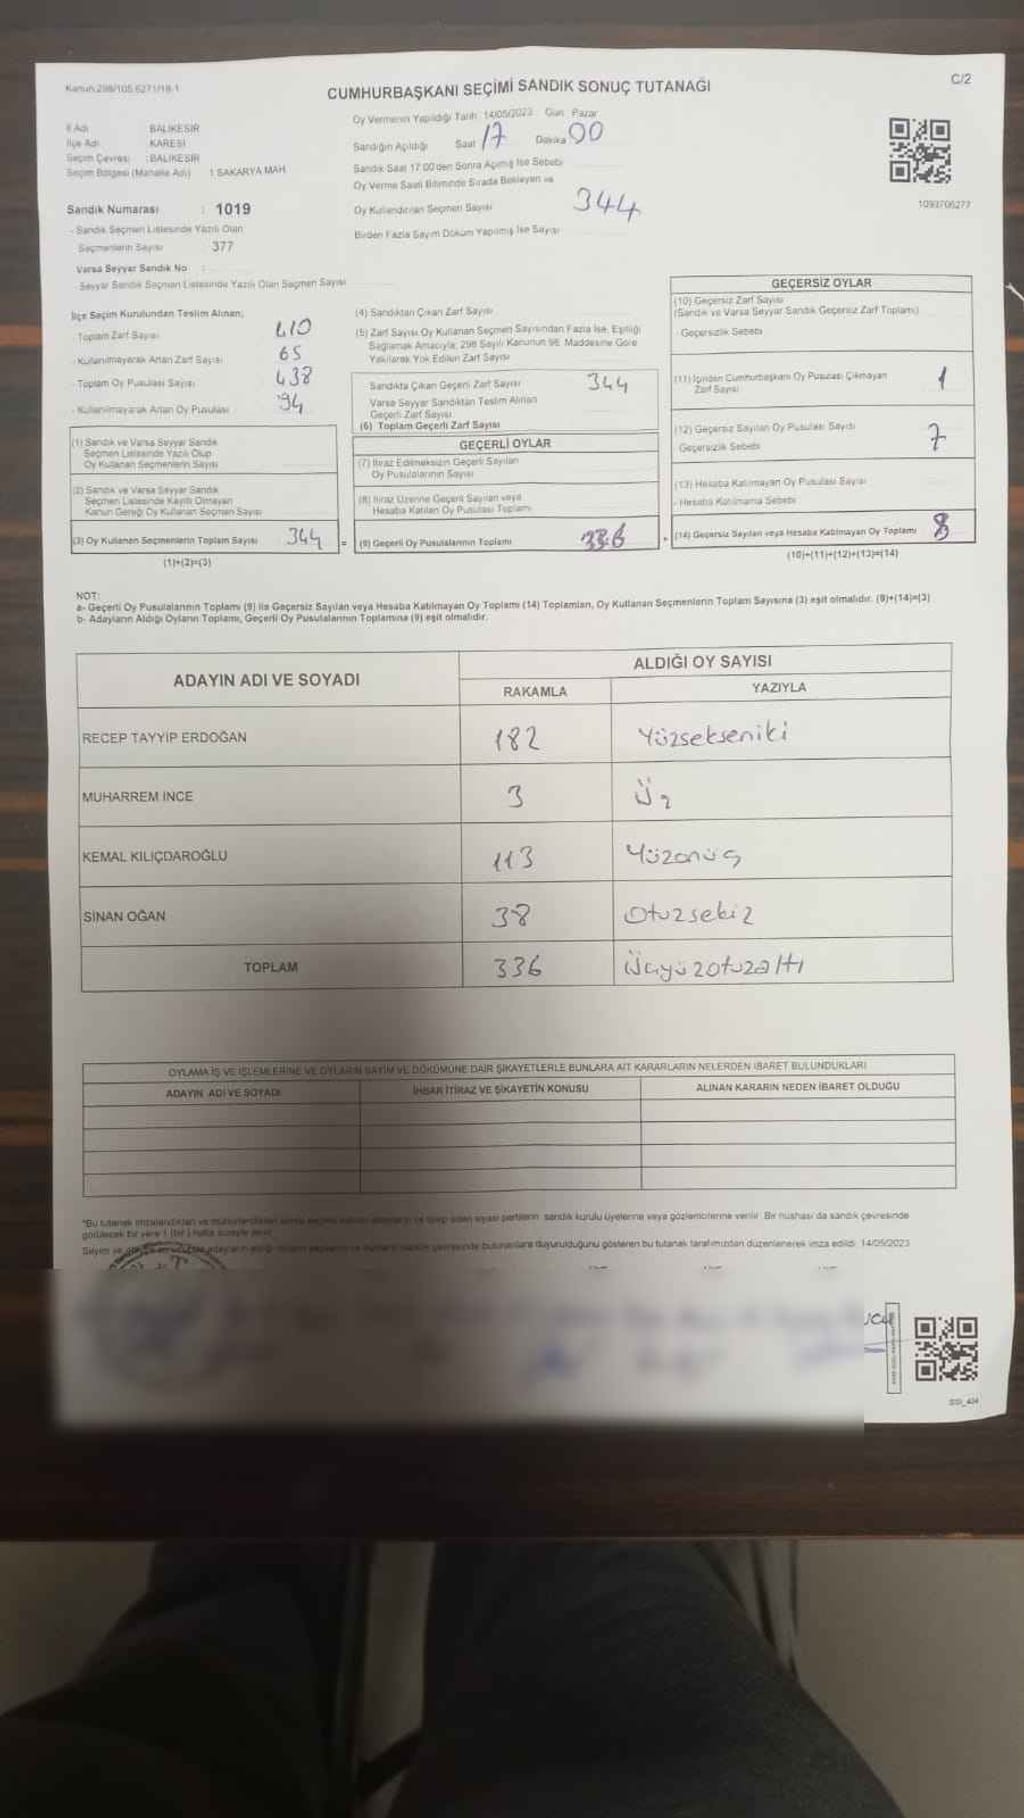 Kanun.298/105.6271/18-1
C/2
CUMHURBAŞKANI SEÇİMİ SANDIK SONUÇ TUTANAĞI
İl Adı BALIKESİR
İlçe Adı KARESİ
Seçim Çevresi : BALIKESİR
Seçim Bölgesi (Mahalle Adı) 1 SAKARYA MAH.
Sandık Numarası : 1019
- Sandık Seçmen Listesinde Yazılı Olan
Seçmenlerin Sayısı 377
Varsa Seyyar Sandık No :
- Seyyar Sandık Seçmen Listesinde Yazılı Olan Seçmen Sayısı
Oy Vermenin Yapıldığı Tarih: 14/05/2023 Gün: Pazar
Sandığın Açıldığı Saat 17 Dakika 00
Sandık Saat 17:00'den Sonra Açılmış İse Sebebi
Oy Verme Saati Bitiminde Sırada Bekleyen ve
Oy Kullandırılan Seçmen Sayısı 344
Birden Fazla Sayım Döküm Yapılmış İse Sayısı
1093706277
İlçe Seçim Kurulundan Teslim Alınan;
- Toplam Zarf Sayısı 410
- Kullanılmayarak Artan Zarf Sayısı 65
- Toplam Oy Pusulası Sayısı 438
- Kullanılmayarak Artan Oy Pusulası 94
(1) Sandık ve Varsa Seyyar Sandık
Seçmen Listesinde Yazılı Olup
Oy Kullanan Seçmenlerin Sayısı
(2) Sandık ve Varsa Seyyar Sandık
Seçmen Listesinde Kayıtlı Olmayan
Kanun Gereği Oy Kullanan Seçmen Sayısı
(3) Oy Kullanan Seçmenlerin Toplam Sayısı 344 =
(1)+(2)=(3)
(4) Sandıktan Çıkan Zarf Sayısı
(5) Zarf Sayısı Oy Kullanan Seçmen Sayısından Fazla İse, Eşitliği
Sağlamak Amacıyla, 298 Sayılı Kanunun 98. Maddesine Göre
Yakılarak Yok Edilen Zarf Sayısı
Sandıkta Çıkan Geçerli Zarf Sayısı 344
Varsa Seyyar Sandıktan Teslim Alınan
Geçerli Zarf Sayısı
(6) Toplam Geçerli Zarf Sayısı
GEÇERLİ OYLAR
(7) İtiraz Edilmeksizin Geçerli Sayılan
Oy Pusulalarının Sayısı
(8) İtiraz Üzerine Geçerli Sayılan veya
Hesaba Katılan Oy Pusulası Toplamı
(9) Geçerli Oy Pusulalarının Toplamı 336 +
GEÇERSİZ OYLAR
(10) Geçersiz Zarf Sayısı
(Sandık ve Varsa Seyyar Sandık Geçersiz Zarf Toplamı)
- Geçersizlik Sebebi
(11) İçinden Cumhurbaşkanı Oy Pusulası Çıkmayan
Zarf Sayısı 1
(12) Geçersiz Sayılan Oy Pusulası Sayısı 7
Geçersizlik Sebebi
(13) Hesaba Katılmayan Oy Pusulası Sayısı
- Hesaba Katılmama Sebebi
(14) Geçersiz Sayılan veya Hesaba Katılmayan Oy Toplamı 8
(10)+(11)+(12)+(13)=(14)
NOT:
a- Geçerli Oy Pusulalarının Toplamı (9) ile Geçersiz Sayılan veya Hesaba Katılmayan Oy Toplamı (14) Toplamları, Oy Kullanan Seçmenlerin Toplam Sayısına (3) eşit olmalıdır. (9)+(14)=(3)
b- Adayların Aldığı Oyların Toplamı, Geçerli Oy Pusulalarının Toplamına (9) eşit olmalıdır.
ADAYIN ADI VE SOYADI
ALDIĞI OY SAYISI
RAKAMLA YAZIYLA
RECEP TAYYİP ERDOĞAN 182 Yüzsekseniki
MUHARREM İNCE 3 Üç
KEMAL KILIÇDAROĞLU 113 Yüzonüç
SİNAN OĞAN 38 Otuzsekiz
TOPLAM 336 Üçyüzotuzaltı
OYLAMA İŞ VE İŞLEMLERİNE VE OYLARIN SAYIM VE DÖKÜMÜNE DAİR ŞİKAYETLERLE BUNLARA AİT KARARLARIN NELERDEN İBARET BULUNDUKLARI
ADAYIN ADI VE SOYADI İHBAR İTİRAZ VE ŞİKAYETİN KONUSU ALINAN KARARIN NEDEN İBARET OLDUĞU
siyasi partilerin sandık kurulu üyelerine veya gözlemcilerine verilir. Bir nüshası da sandık çevresinde
bulunanlara duyurulduğunu gösteren bu tutanak tarafımızdan düzenlenerek imza edildi. 14/05/2023